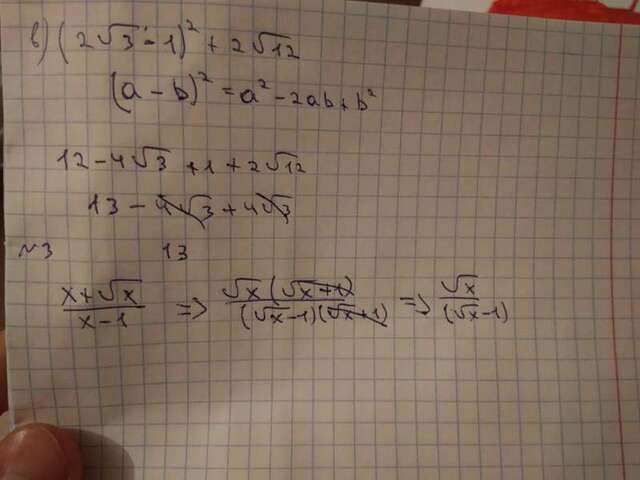 в) (2√3 - 1)² + 2√12
(a - b)² = a² - 2ab + b²
12 - 4√3 + 1 + 2√12
13 - 4√3 + 4√3
13
№3
x + √x / x - 1 => √x (√x + 1) / (√x - 1)(√x + 1) => √x / (√x - 1)